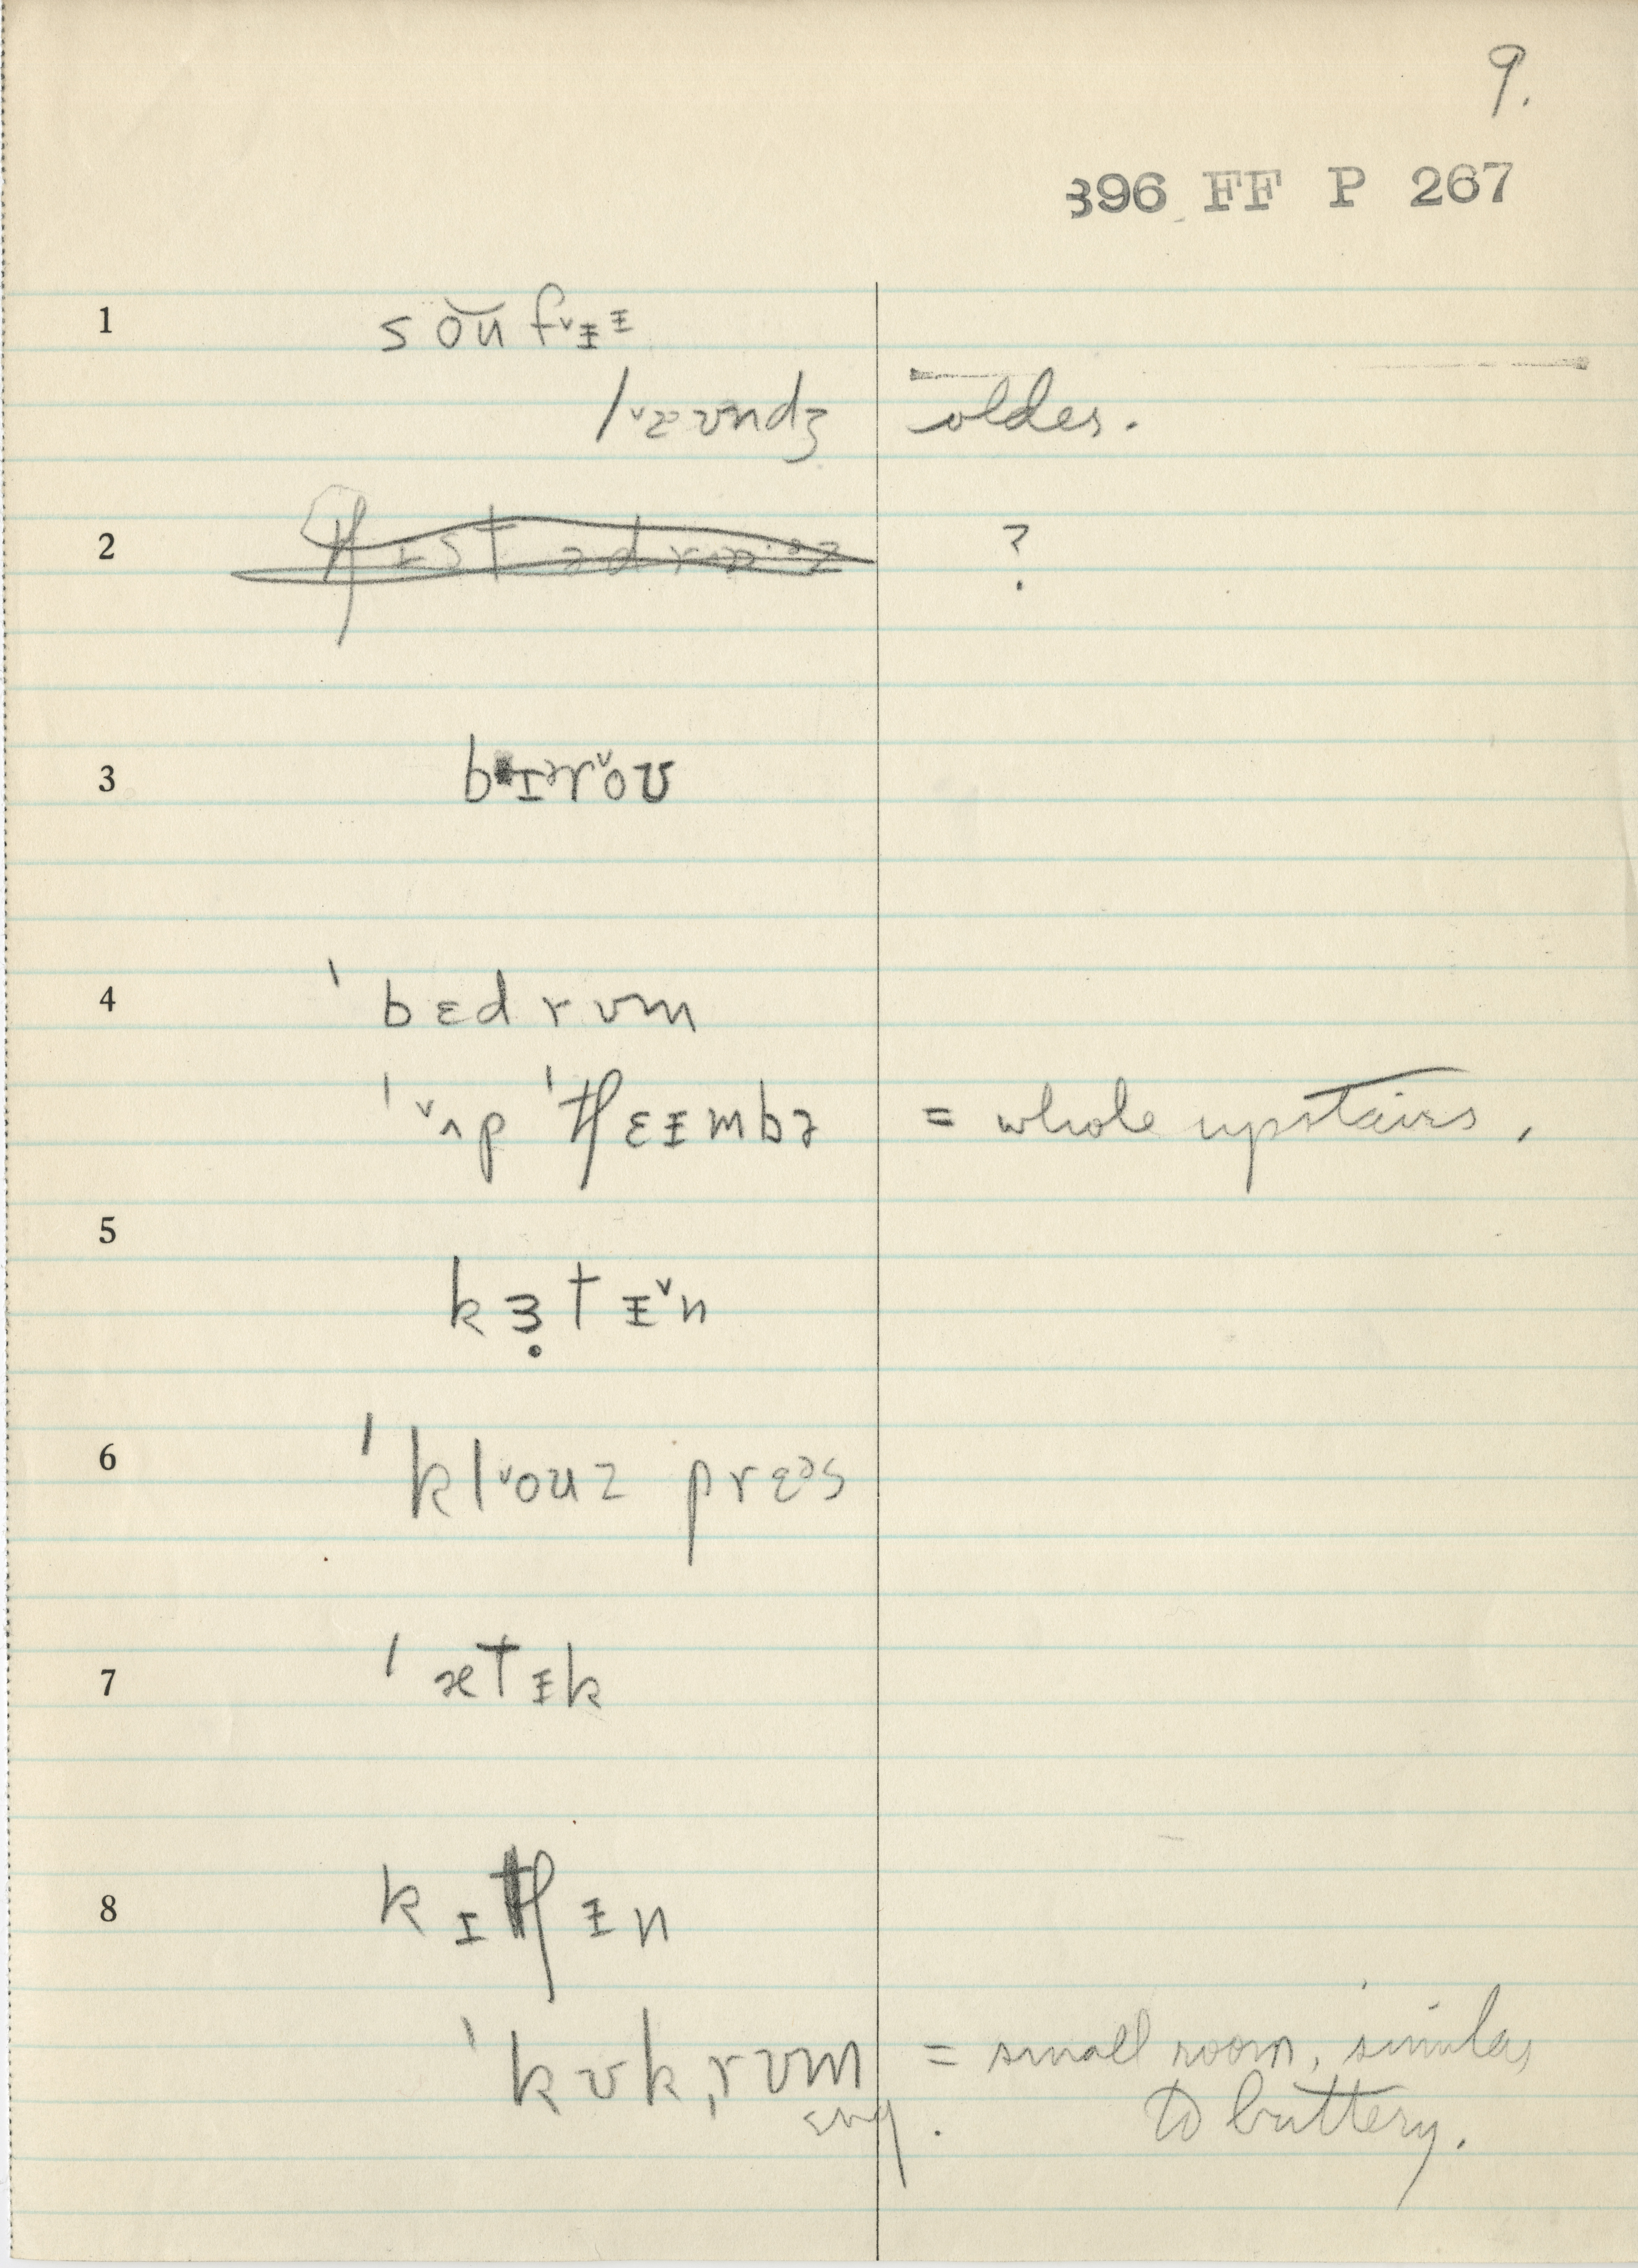 9.
396 FF P 267
1 sou f˅ɨɨ
l˅æʊndʒ older.
2 ?
3 bɪər˅oʊ
4 ˈbɛdrʊm
ˈ˅ʌp ˈtʃɛɨmbə = whole upstairs,
5
kɜ̣tɨ˅n
6 ˈkl˅ouz prɛəs
7 ˈætɨk
8 kɪtʃɨn
ˈkʊkˌrʊm = small room, similar
sug. to buttery.